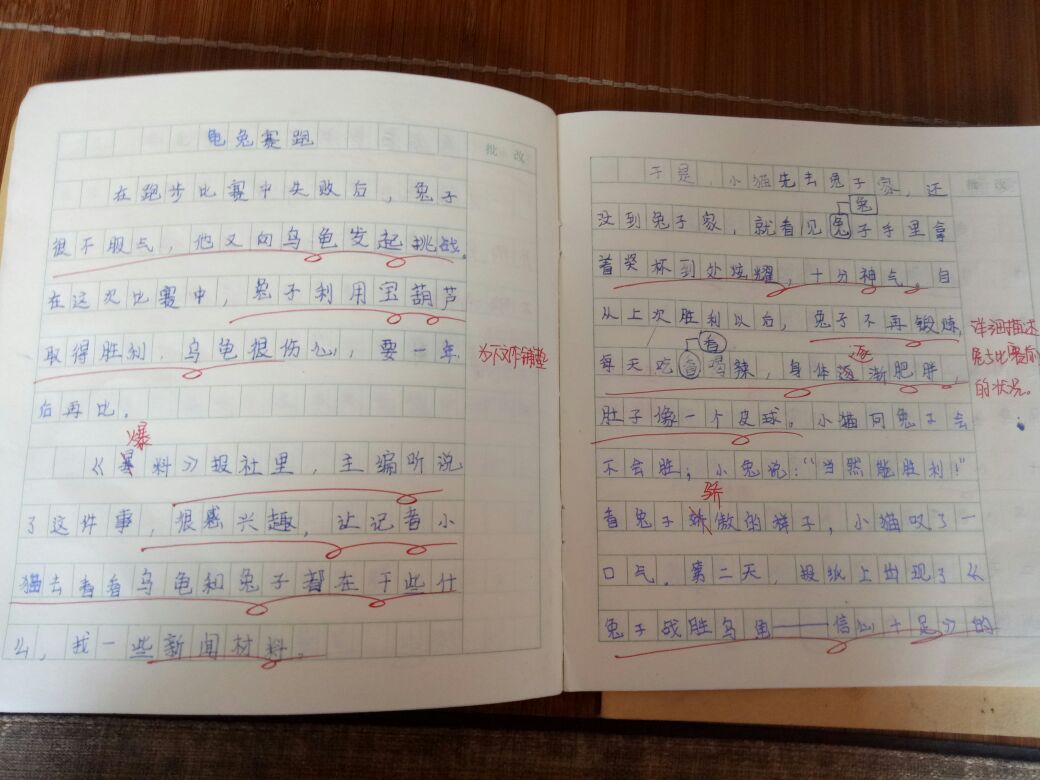 龟兔赛跑
批改
在跑步比赛中失败后，兔子
很不服气，他又向乌龟发起挑战。
在这次比赛中，兔子利用宝葫芦
取得胜利，乌龟很伤心，要一年
为下文作铺垫
后再比。
爆
《暴料》报社里，主编听说
了这件事，很感兴趣，让记者小
猫去看看乌龟和兔子都在干些什
么，找一些新闻材料。
批改
于是，小猫先去兔子家，还
兔
没到兔子家，就看见兔子手里拿
着奖杯到处炫耀，十分神气。自
从上次胜利以后，兔子不再锻炼，
详细描述兔子比赛前的状况。
香
逐
每天吃香喝辣，身体逐渐肥胖，
肚子像一个皮球。小猫问兔子会
不会胜；小兔说：“当然能胜利！”
骄
看兔子骄傲的样子，小猫叹了一
口气。第二天，报纸上出现了《
兔子战胜乌龟——信心十足》的